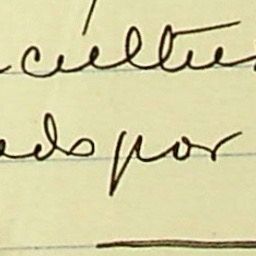 cultu
ads por